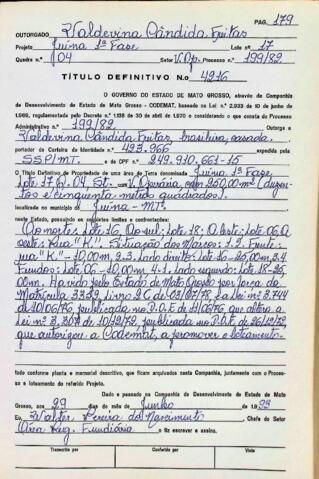 PAG. 179
OUTORGADO Valdevina Cândida Freitas
Projeto Juina 1ª Fase Lote nº 17
Quadra n.º 04 Setor V. Op. Processo nº 199/82
TÍTULO DEFINITIVO N.o 4216
O GOVERNO DO ESTADO DE MATO GROSSO, através da Companhia
de Desenvolvimento do Estado de Mato Grosso - CODEMAT, baseado na Lei n.º 2.933 de 10 de junho de
1.969, regulamentado pelo Decreto n.º 1.138 de 30 de abril de 1.970 e considerando o que consta do Processo
Administrativo n.º 199/82 Outorga a
Valdevina Cândida Freitas, brasileira, casada.
portador da Carteira de Identidade n.º 423.966 expedida pela
SSP/MT. e do CPF nº 249.910.661-15
O Título Definitivo de Propriedade de uma área de Terra denominada Juina 1ª Fase,
Lote 17 Q. 04, St. V. Operária, com 250,00m² (duzen-
tos e cinquenta metros quadrados).
localizada no município de Juina - MT.
neste Estado, possuindo os seguintes limites e confrontações:
Ao norte: Lote 16, Ao sul: Lote 18; A leste: Lote 06, O
oeste: Rua "K". Situação dos Marcos: 1.2. Frente:
rua "K" - 10,00m, 2-3. Lado direito: Lote 16-25,00m, 3.4
Fundos: Lote 06 - 10,00m, 4-1. Lado esquerdo: Lote 18-25,
00m. Havido pelo Estado de Mato Grosso por força da
Matrícula 3339, Livro 2C de 03/07/78, a Lei nº 3.744
de 10/06/76, publicada no D.O.E de 11/06/76 que altera a
Lei nº 3.307 de 10/12/72, publicada no D.O.E. de 26/12/72,
que autorizou a Codemat, a promover o loteamento.
tudo conforme planta e memorial descritivo, que ficam arquivados nesta Companhia, juntamente com o Proces-
so e loteamento do referido Projeto.
Dado e passado na Companhia de Desenvolvimento do Estado de Mato
Grosso, aos 29 dias do mês de Junho de 1993
Eu, Walter Pereira do Nascimento Chefe do Setor
Área Reg. Fundiária o fiz escrever e assino.
Transcrito por
Conferido por
Visto